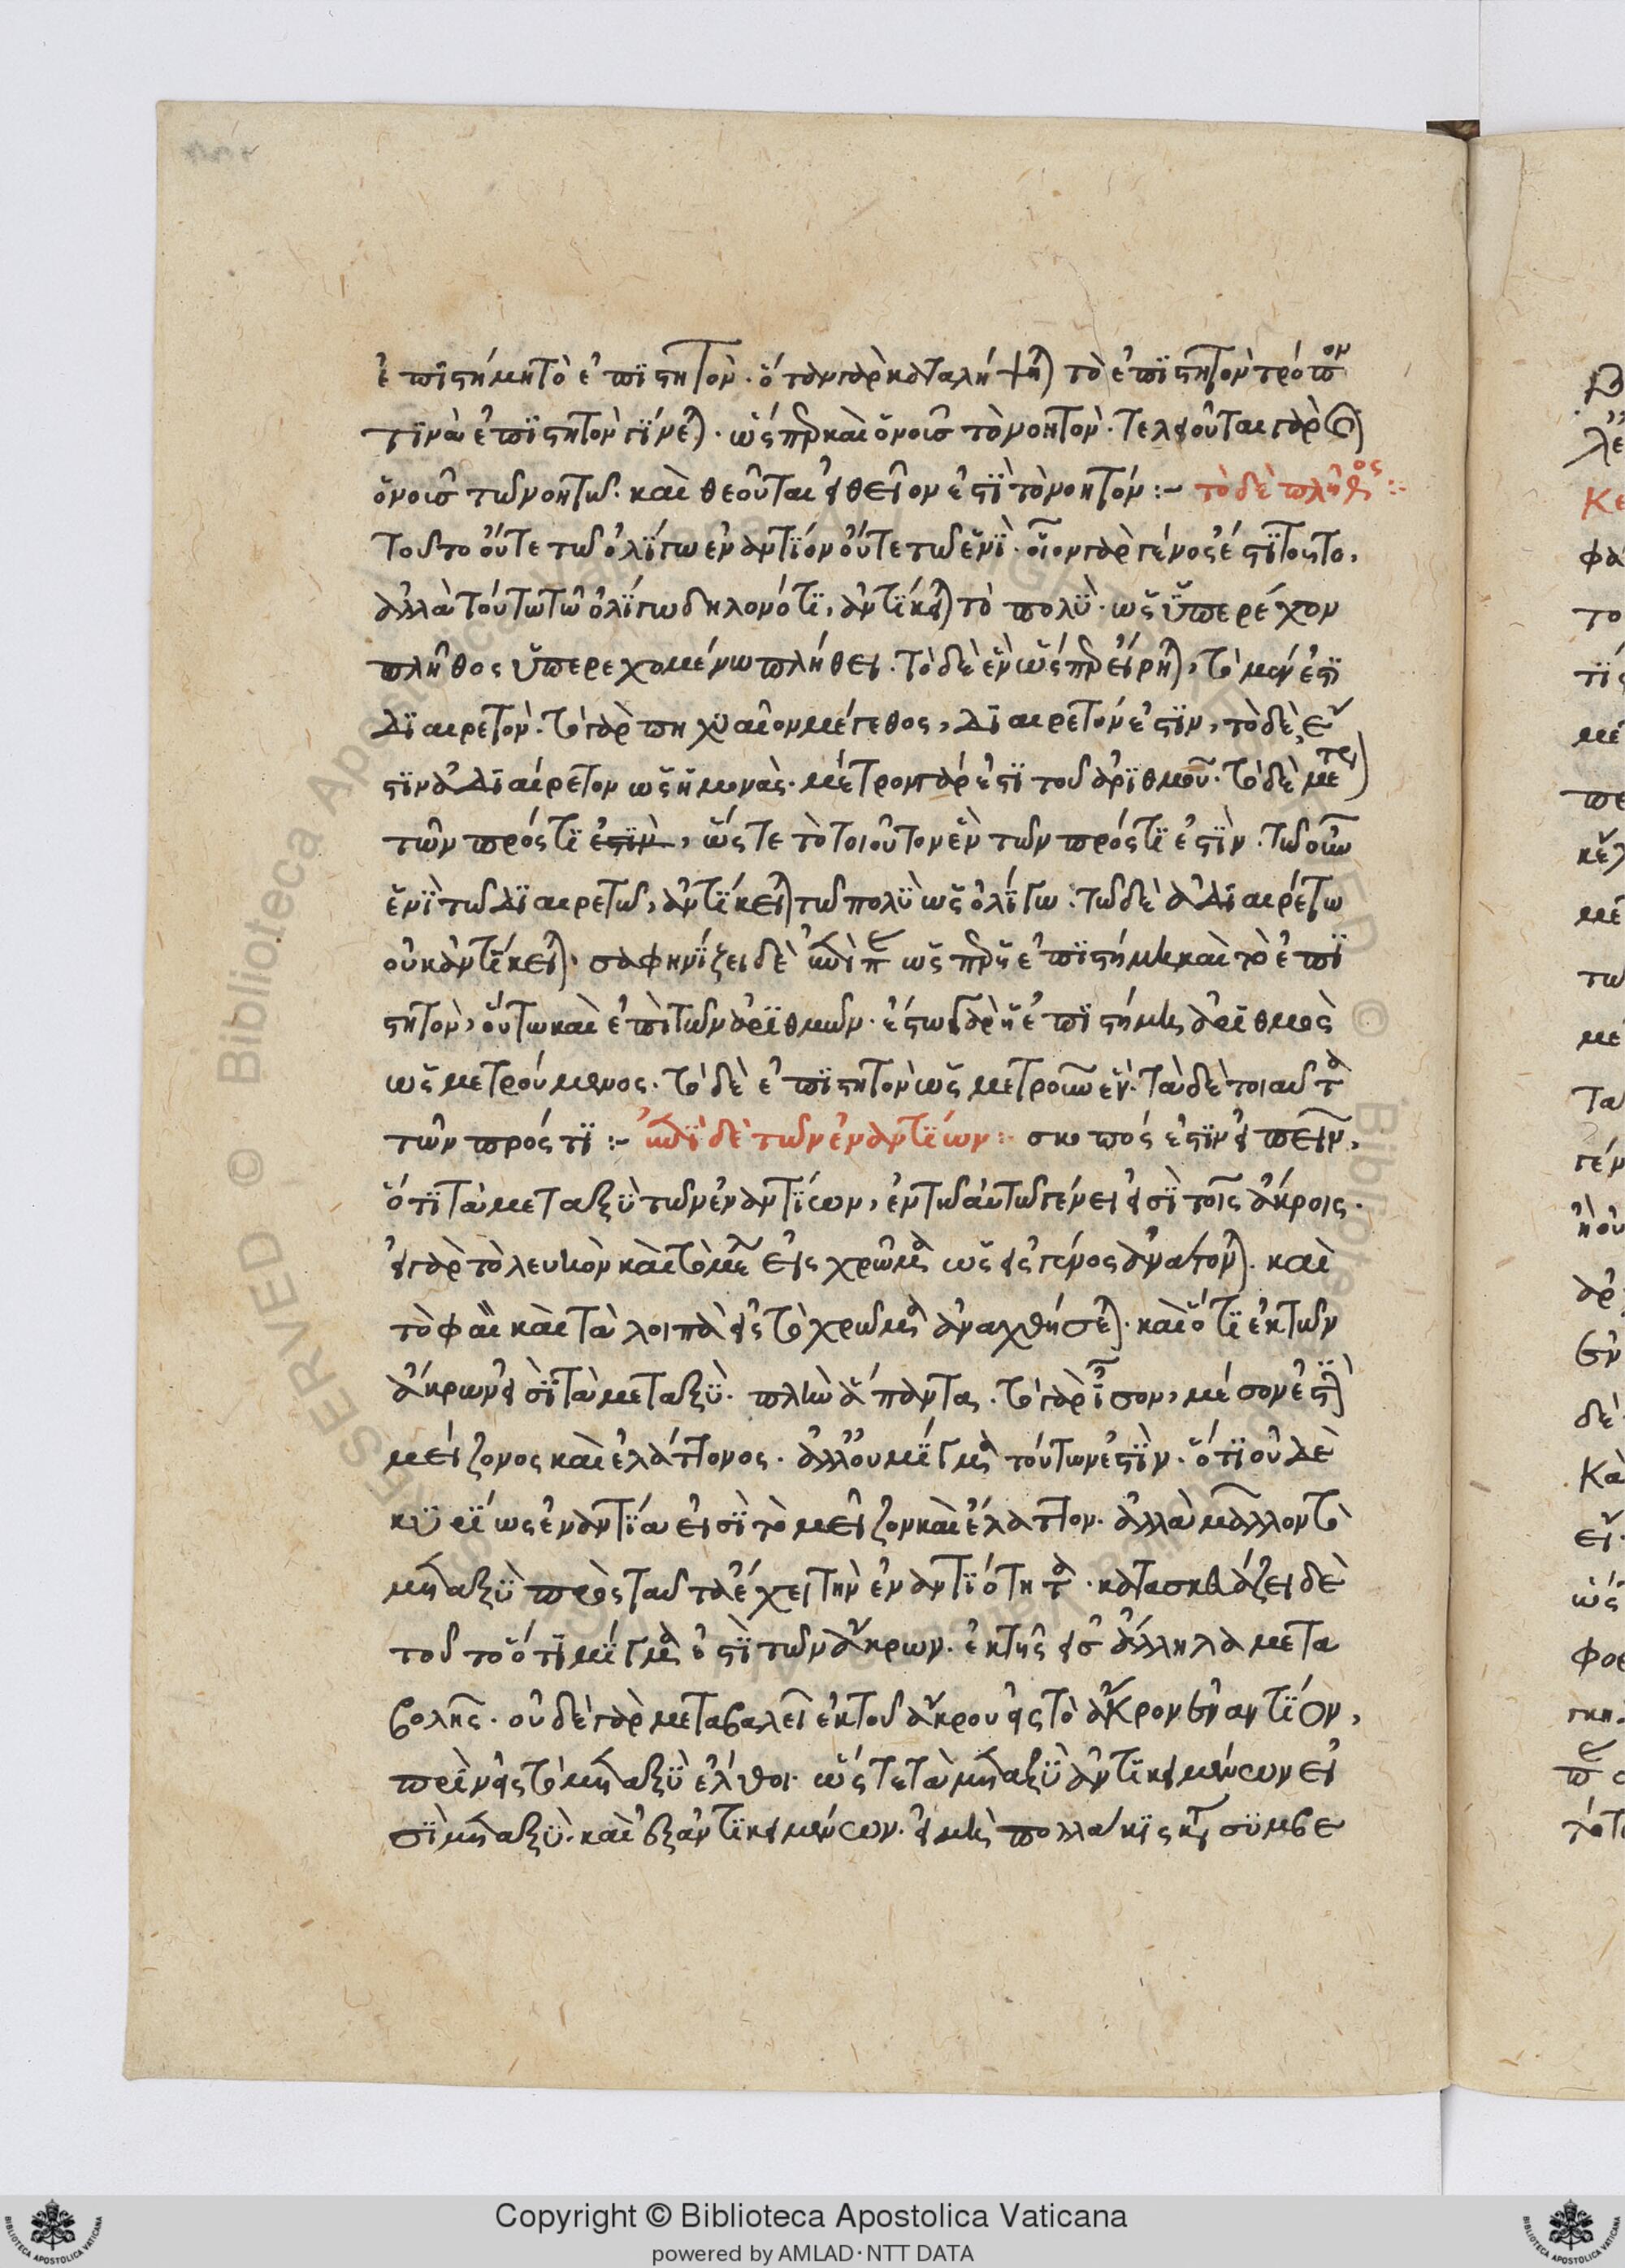 ἐπιστήμη τὸ ἐπιστητόν. ὅταν γὰρ καταλήψηται τὸ ἐπιστητὸν τρόπον
τινὰ ἐπιστητὸν γίνεται. ὥσπερ καὶ ὁ νοῦς τὸ νοητόν. τελειοῦται γὰρ
ὁ νοῦς τῶ νοητῶ. καὶ θεοῦται εἰ θεῖον ἐστὶ τὸ νοητόν :- τὸ δὲ πλῆθος :-
τοῦτο οὔτε τῶ ὀλίγω ἐναντίον οὔτε τῶ ἑνί. οἷον γὰρ γένος ἐστὶ τοῦτο,
ἀλλὰ τούτω τῶ ὀλίγω δηλονότι, ἀντίκειται τὸ πολύ. ὡς ὑπερέχον
πλῆθος ὑπερεχομένω πλήθει. τὸ δὲ ἓν ὥσπερ εἴρηται, τὸ μέν ἐστι
διαιρετόν. τὸ γὰρ πηχυαῖον μέγεθος, διαιρετόν ἐστιν, τὸ δὲ ἔ
στιν ἀδιαίρετον ὡς ἡ μονάς. μέτρον γάρ ἐστι τοῦ ἀριθμοῦ. τὸ δὲ μέτρον
τῶν πρός τι ἐστὶν, ὥστε τὸ τοιοῦτον ἓν τῶν πρός τι ἐστίν. τῶ οὖν
ἑνὶ τῶ διαιρετῶ, ἀντίκειται τῶ πολὺ ὡς ὀλίγω. τῶ δὲ ἀδιαιρέτω
οὐκ ἀντίκειται. σαφηνίζει δὲ ὅτι ὥσπερ ἡ ἐπιστήμη καὶ τὸ ἐπι
στητόν, οὕτω καὶ ἐπὶ τῶν ἀριθμῶν. ἔστω γὰρ ἡ ἐπιστήμη ἀριθμὸς
ὡς μετρούμενος. τὸ δὲ ἐπιστητὸν ὡς μετροῦν ἕν. τὰ δὲ τοιαῦτα
τῶν πρός τι :- ἐπεὶ δὲ τῶν ἐναντίων :- σκοπός ἐστιν εἰπεῖν,
ὅτι τὰ μεταξὺ τῶν ἐναντίων, ἐν τῶ αὐτῶ γένει εἰσὶ τοῖς ἄκροις.
εἰ γὰρ τὸ λευκὸν καὶ τὸ μέλαν εἰς χρῶμα ὡς εἰς γένος ἀνάγονται. καὶ
τὸ φαιὸν καὶ τὰ λοιπὰ εἰς τὸ χρῶμα ἀναχθήσεται. καὶ ὅτι ἐκ τῶν
ἄκρων εἰσὶ τὰ μεταξύ. πλὴν ἅπαντας. τὸ γὰρ ἴσον, μέσον ἐστὶ
μείζονος καὶ ἐλάττονος. ἀλλ' οὐ μίγμα τούτων ἐστίν. ὅτι οὐδὲ
κυρίως ἐναντία εἰσὶ τὸ μεῖζον καὶ ἔλαττον. ἀλλὰ μᾶλλον τὸ
μεταξὺ πρὸς ταῦτα ἔχει τὴν ἐναντιότητα. κατασκευάζει δὲ
τοῦτο ὅτι μίγμα ἐστὶ τῶν ἄκρων. ἐκ τῆς εἰς ἄλληλα μετα
βολῆς. οὐδὲ γὰρ μεταβαλεῖ ἐκ τοῦ ἄκρου εἰς τὸ ἄκρον ἐναντίον,
πρὶν εἰς τὸ μεταξὺ ἔλθοι. ὥστε τὰ μεταξὺ ἀντικειμένων εἰ
σὶ μεταξύ. καὶ ἐξ ἀντικειμένων. εἰ μὴ πολλάκις κατὰ συμβε
Copyright © Biblioteca Apostolica Vaticana
powered by AMLAD · NTT DATA